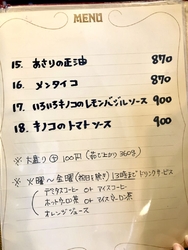 MENU
15. あさりの正油 870
16. メンタイコ 870
17. いろいろキノコのレモンバジルソース 900
18. キノコのトマトソース 900
※ 大盛り 100円
※ 火曜〜金曜(祝日を除く) 13時までドリンクサービス
デミタスコーヒー or アイスコーヒー
ホットウーロン茶 or アイスウーロン茶
オレンジジュース